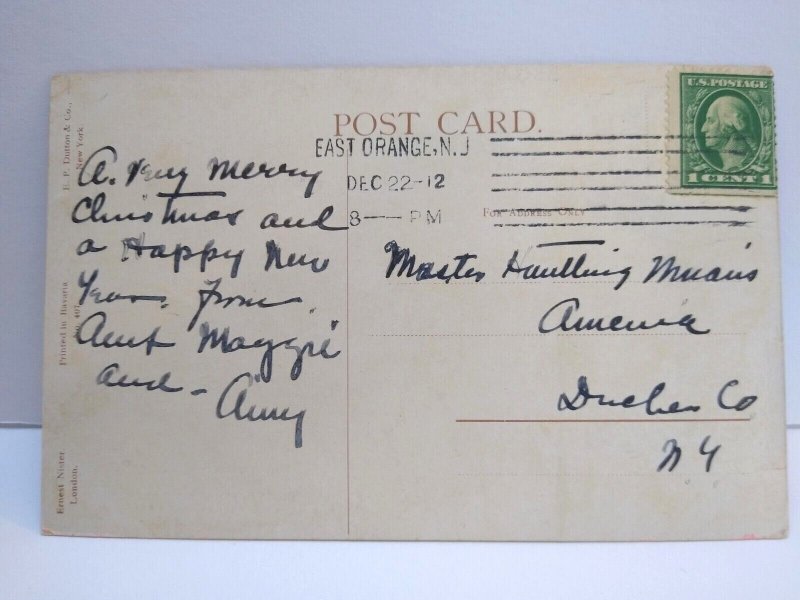 POST CARD.
U.S. POSTAGE
1 CENT 1
EAST ORANGE, N.J
DEC 22-12
8 — PM
FOR ADDRESS ONLY
E. P. Dutton & Co.,
New York
Printed in Bavaria
Ernest Nister
London.
A. Very Merry
Christmas and
a Happy New
Year. from
Aunt Maggie
and - Amy
Master
Amenia
Duches Co
N Y